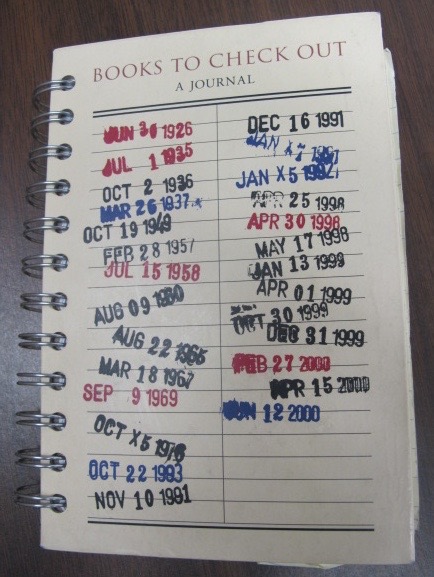 BOOKS TO CHECK OUT
A JOURNAL
JUN 30 1926
JUL 1 1935
OCT 2 1936
MAR 26 1937
OCT 19 1949
FEB 28 1957
JUL 15 1958
AUG 09 1960
AUG 22 1965
MAR 18 1967
SEP 9 1969
OCT X5
OCT 22
NOV 10 1991
DEC 16 1991
JAN
JAN X5
APR 25 1998
APR 30 1998
MAY 17 1998
JAN 13 1999
APR 01 1999
OCT 30 1999
DEC 31 1999
FEB 27 2000
APR 15 2000
JUN 12 2000